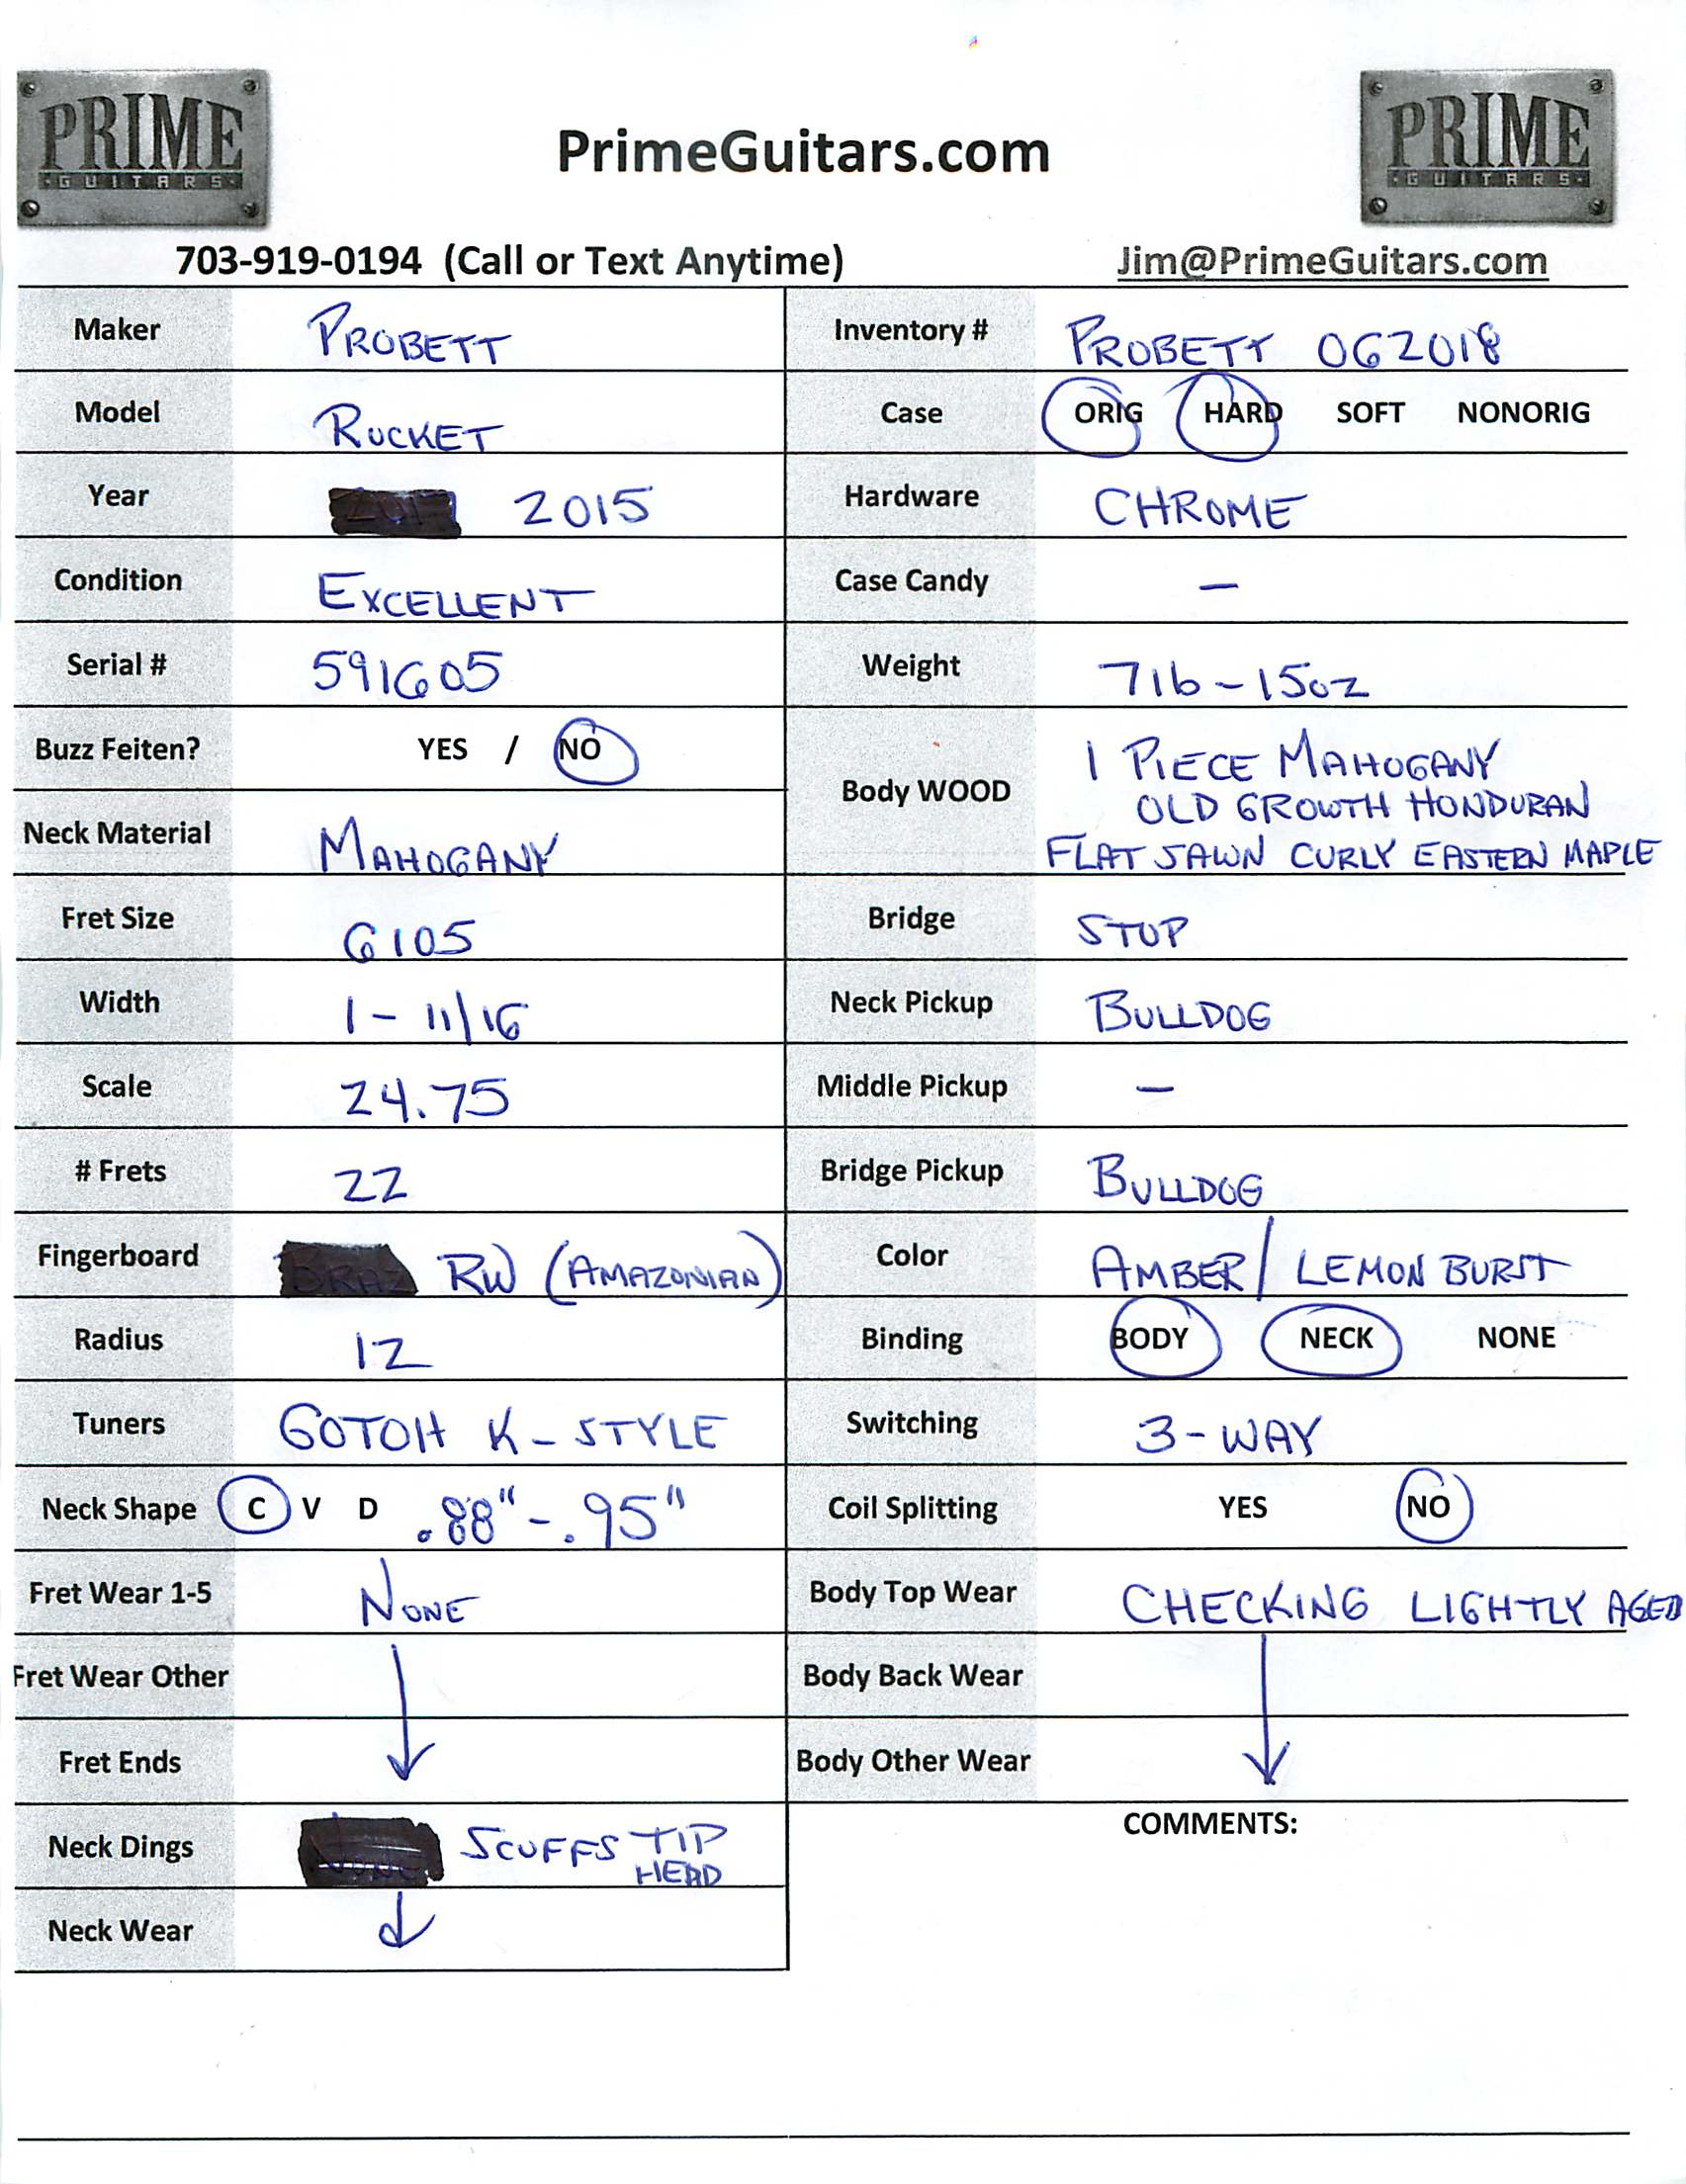 PRIME
GUITARS
PrimeGuitars.com
PRIME
GUITARS
703-919-0194 (Call or Text Anytime)
Jim@PrimeGuitars.com
Maker PROBETT
Inventory # PROBETT 062018
Model ROCKET
Case ORIG HARD SOFT NONORIG
Year 2015
Hardware CHROME
Condition EXCELLENT
Case Candy –
Serial # 591605
Weight 7lb-15oz
Buzz Feiten? YES / NO
Body WOOD 1 PIECE MAHOGANY
OLD GROWTH HONDURAN
FLAT SAWN CURLY EASTERN MAPLE
Neck Material MAHOGANY
Fret Size 6105
Bridge STOP
Width 1-11/16
Neck Pickup BULLDOG
Scale 24.75
Middle Pickup –
# Frets 22
Bridge Pickup BULLDOG
Fingerboard RW (AMAZONIAN)
Color AMBER/LEMON BURST
Radius 12
Binding BODY NECK NONE
Tuners GOTOH K-STYLE
Switching 3-WAY
Neck Shape C V D .88"-.95"
Coil Splitting YES NO
Fret Wear 1-5 NONE
Body Top Wear CHECKING LIGHTLY AGED
Fret Wear Other
Body Back Wear
Fret Ends
Body Other Wear
Neck Dings SCUFFS TIP
HEAD
COMMENTS:
Neck Wear